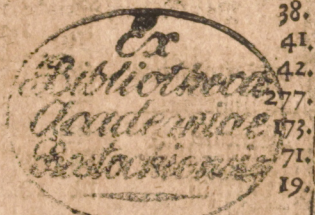 Ex
Bibliotheca
Academiae
Rostochiensis
38.
41.
42.
277.
173.
71.
19.